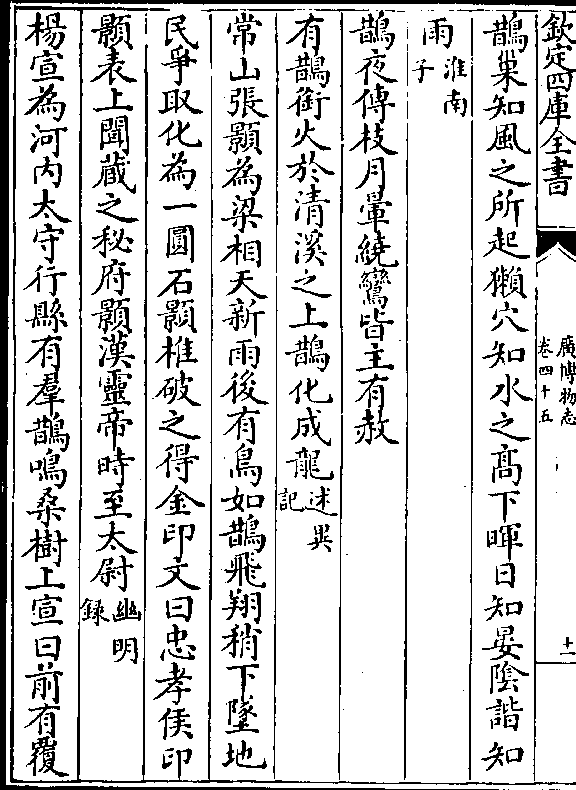 欽定四庫全書
廣博物志
卷四十五
十一
鵲巢知風之所起獺穴知水之髙下暉日知晏隂諧知
雨淮南子
鵲夜傳枝月暈繞鸞皆主有赦
有鵲銜火於清溪之上鵲化成龍述異記
常山張顥為梁相天新雨後有鳥如鵲飛翔稍下墜地
民爭取化為一圓石顥椎破之得金印文曰忠孝侯印
顥表上聞藏之秘府顥漢靈帝時至太尉幽明録
楊宣為河内太守行縣有羣鵲鳴桑樹上宣曰前有覆